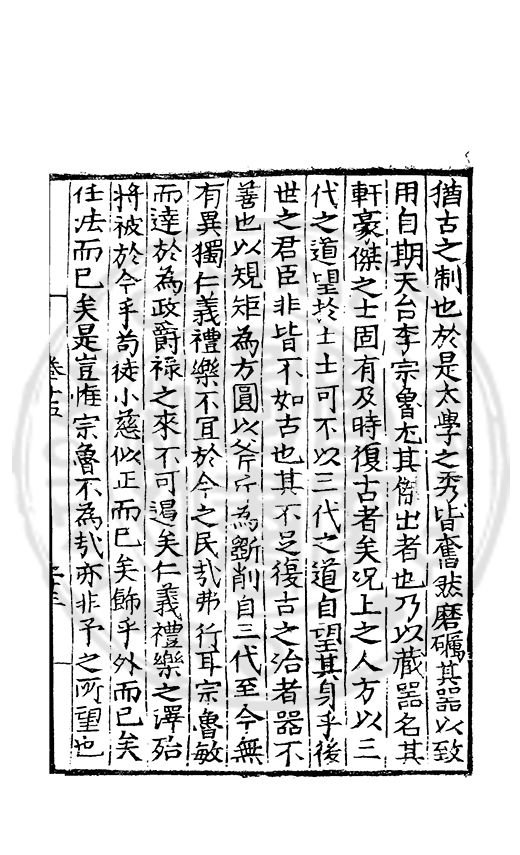 猶古之制也於是太學之秀皆奮然磨礪其器以致
用自期天台李宗魯尤其傑出者也乃以藏器名其
軒豪傑之士固有及時復古者矣況上之人方以三
代之道望於士士可不以三代之道自望其身乎後
世之君臣非皆不如古也其不足復古之治者器不
善也以規矩為方圓以斧斤為斵削自三代至今無
有異獨仁義禮樂不宜於今之民哉弗行耳宗魯敏
而達於為政爵祿之來不可遏矣仁義禮樂之澤殆
將被於今乎苟徒小慈似正而已矣飾乎外而已矣
任法而已矣是豈惟宗魯不為哉亦非予之所望也